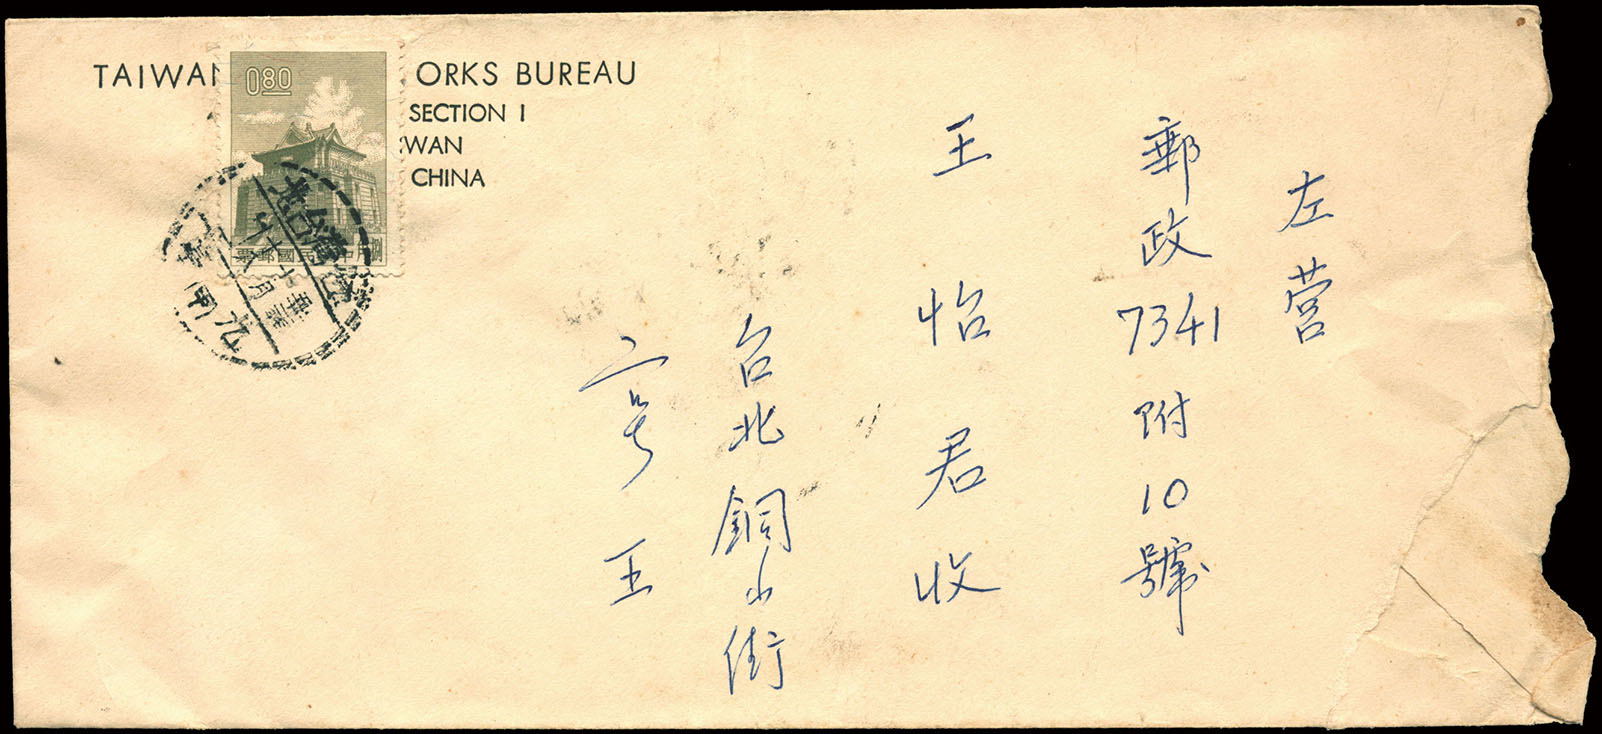 TAIWAN ORKS BUREAU
SECTION 1
WAN
CHINA
0.80
左營
郵政7341附10號
王怡君收
台北銅山街
二号王